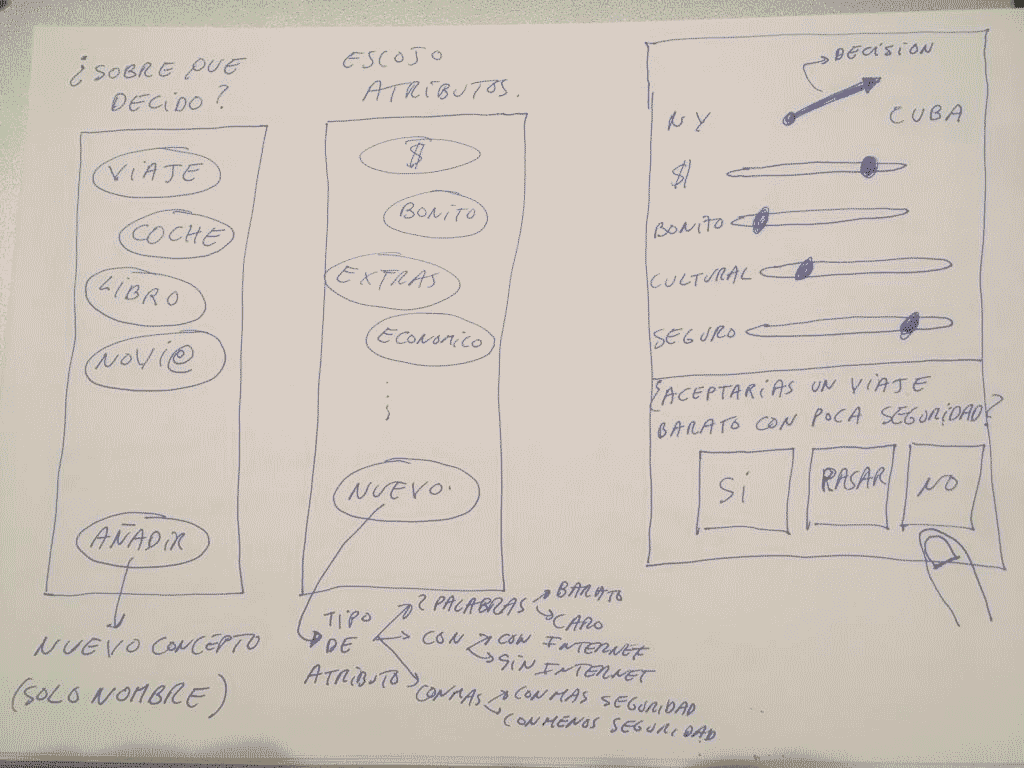 ¿SOBRE QUE
DECIDO?
VIAJE
COCHE
LIBRO
NOVI@
AÑADIR
NUEVO CONCEPTO
(SOLO NOMBRE)
ESCOJO
ATRIBUTOS.
$
BONITO
EXTRAS
ECONOMICO
NUEVO.
TIPO
DE
ATRIBUTO
2 PALABRAS
BARATO
CARO
CON
CON INTERNET
SIN INTERNET
CON MAS
CON MAS SEGURIDAD
CON MENOS SEGURIDAD
DECISION
NY
CUBA
$
BONITO
CULTURAL
SEGURO
¿ACEPTARIAS UN VIAJE
BARATO CON POCA SEGURIDAD?
SI
PASAR
NO